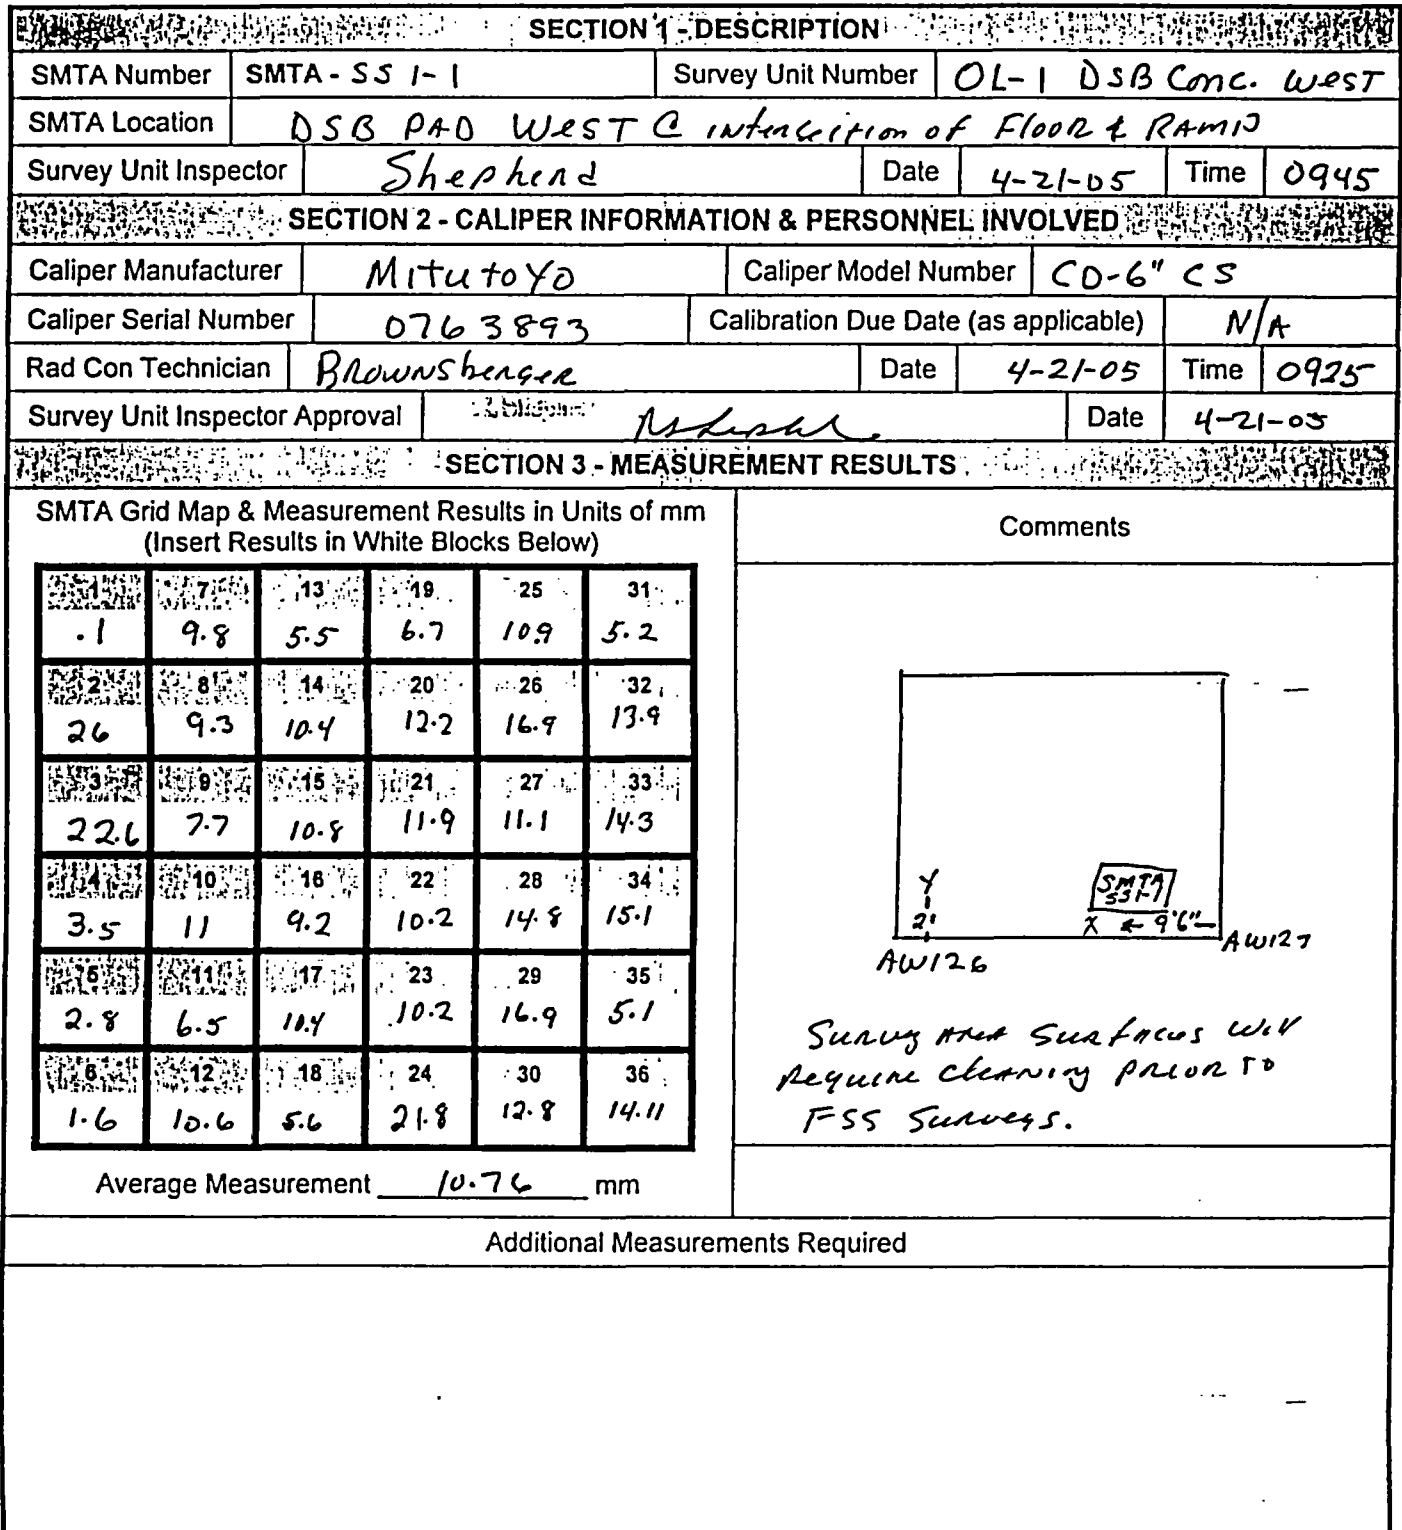 SECTION 1 - DESCRIPTION
SMTA Number SMTA - SS 1-1 Survey Unit Number OL-1 DSB Conc. West
SMTA Location DSB PAD WEST @ intersection of Floor & RAMP
Survey Unit Inspector Shepherd Date 4-21-05 Time 0945
SECTION 2 - CALIPER INFORMATION & PERSONNEL INVOLVED
Caliper Manufacturer MITUTOYO Caliper Model Number CD-6" CS
Caliper Serial Number 0763893 Calibration Due Date (as applicable) N/A
Rad Con Technician Brownsberger Date 4-21-05 Time 0925
Survey Unit Inspector Approval Date 4-21-05
SECTION 3 - MEASUREMENT RESULTS
SMTA Grid Map & Measurement Results in Units of mm
(Insert Results in White Blocks Below)
1 7 13 19 25 31
.1 9.8 5.5 6.7 10.9 5.2
2 8 14 20 26 32
26 9.3 10.4 12.2 16.9 13.9
3 9 15 21 27 33
22.6 7.7 10.8 11.9 11.1 14.3
4 10 16 22 28 34
3.5 11 9.2 10.2 14.8 15.1
5 11 17 23 29 35
2.8 6.5 10.4 10.2 16.9 5.1
6 12 18 24 30 36
1.6 10.6 5.6 21.8 12.8 14.11
Average Measurement 10.76 mm
Comments
SMTA
SS1-1
Y
2'
X ← 9'6"
AW127
AW126
Survey Area Surfaces Will
Require Cleaning Prior to
FSS Surveys.
Additional Measurements Required